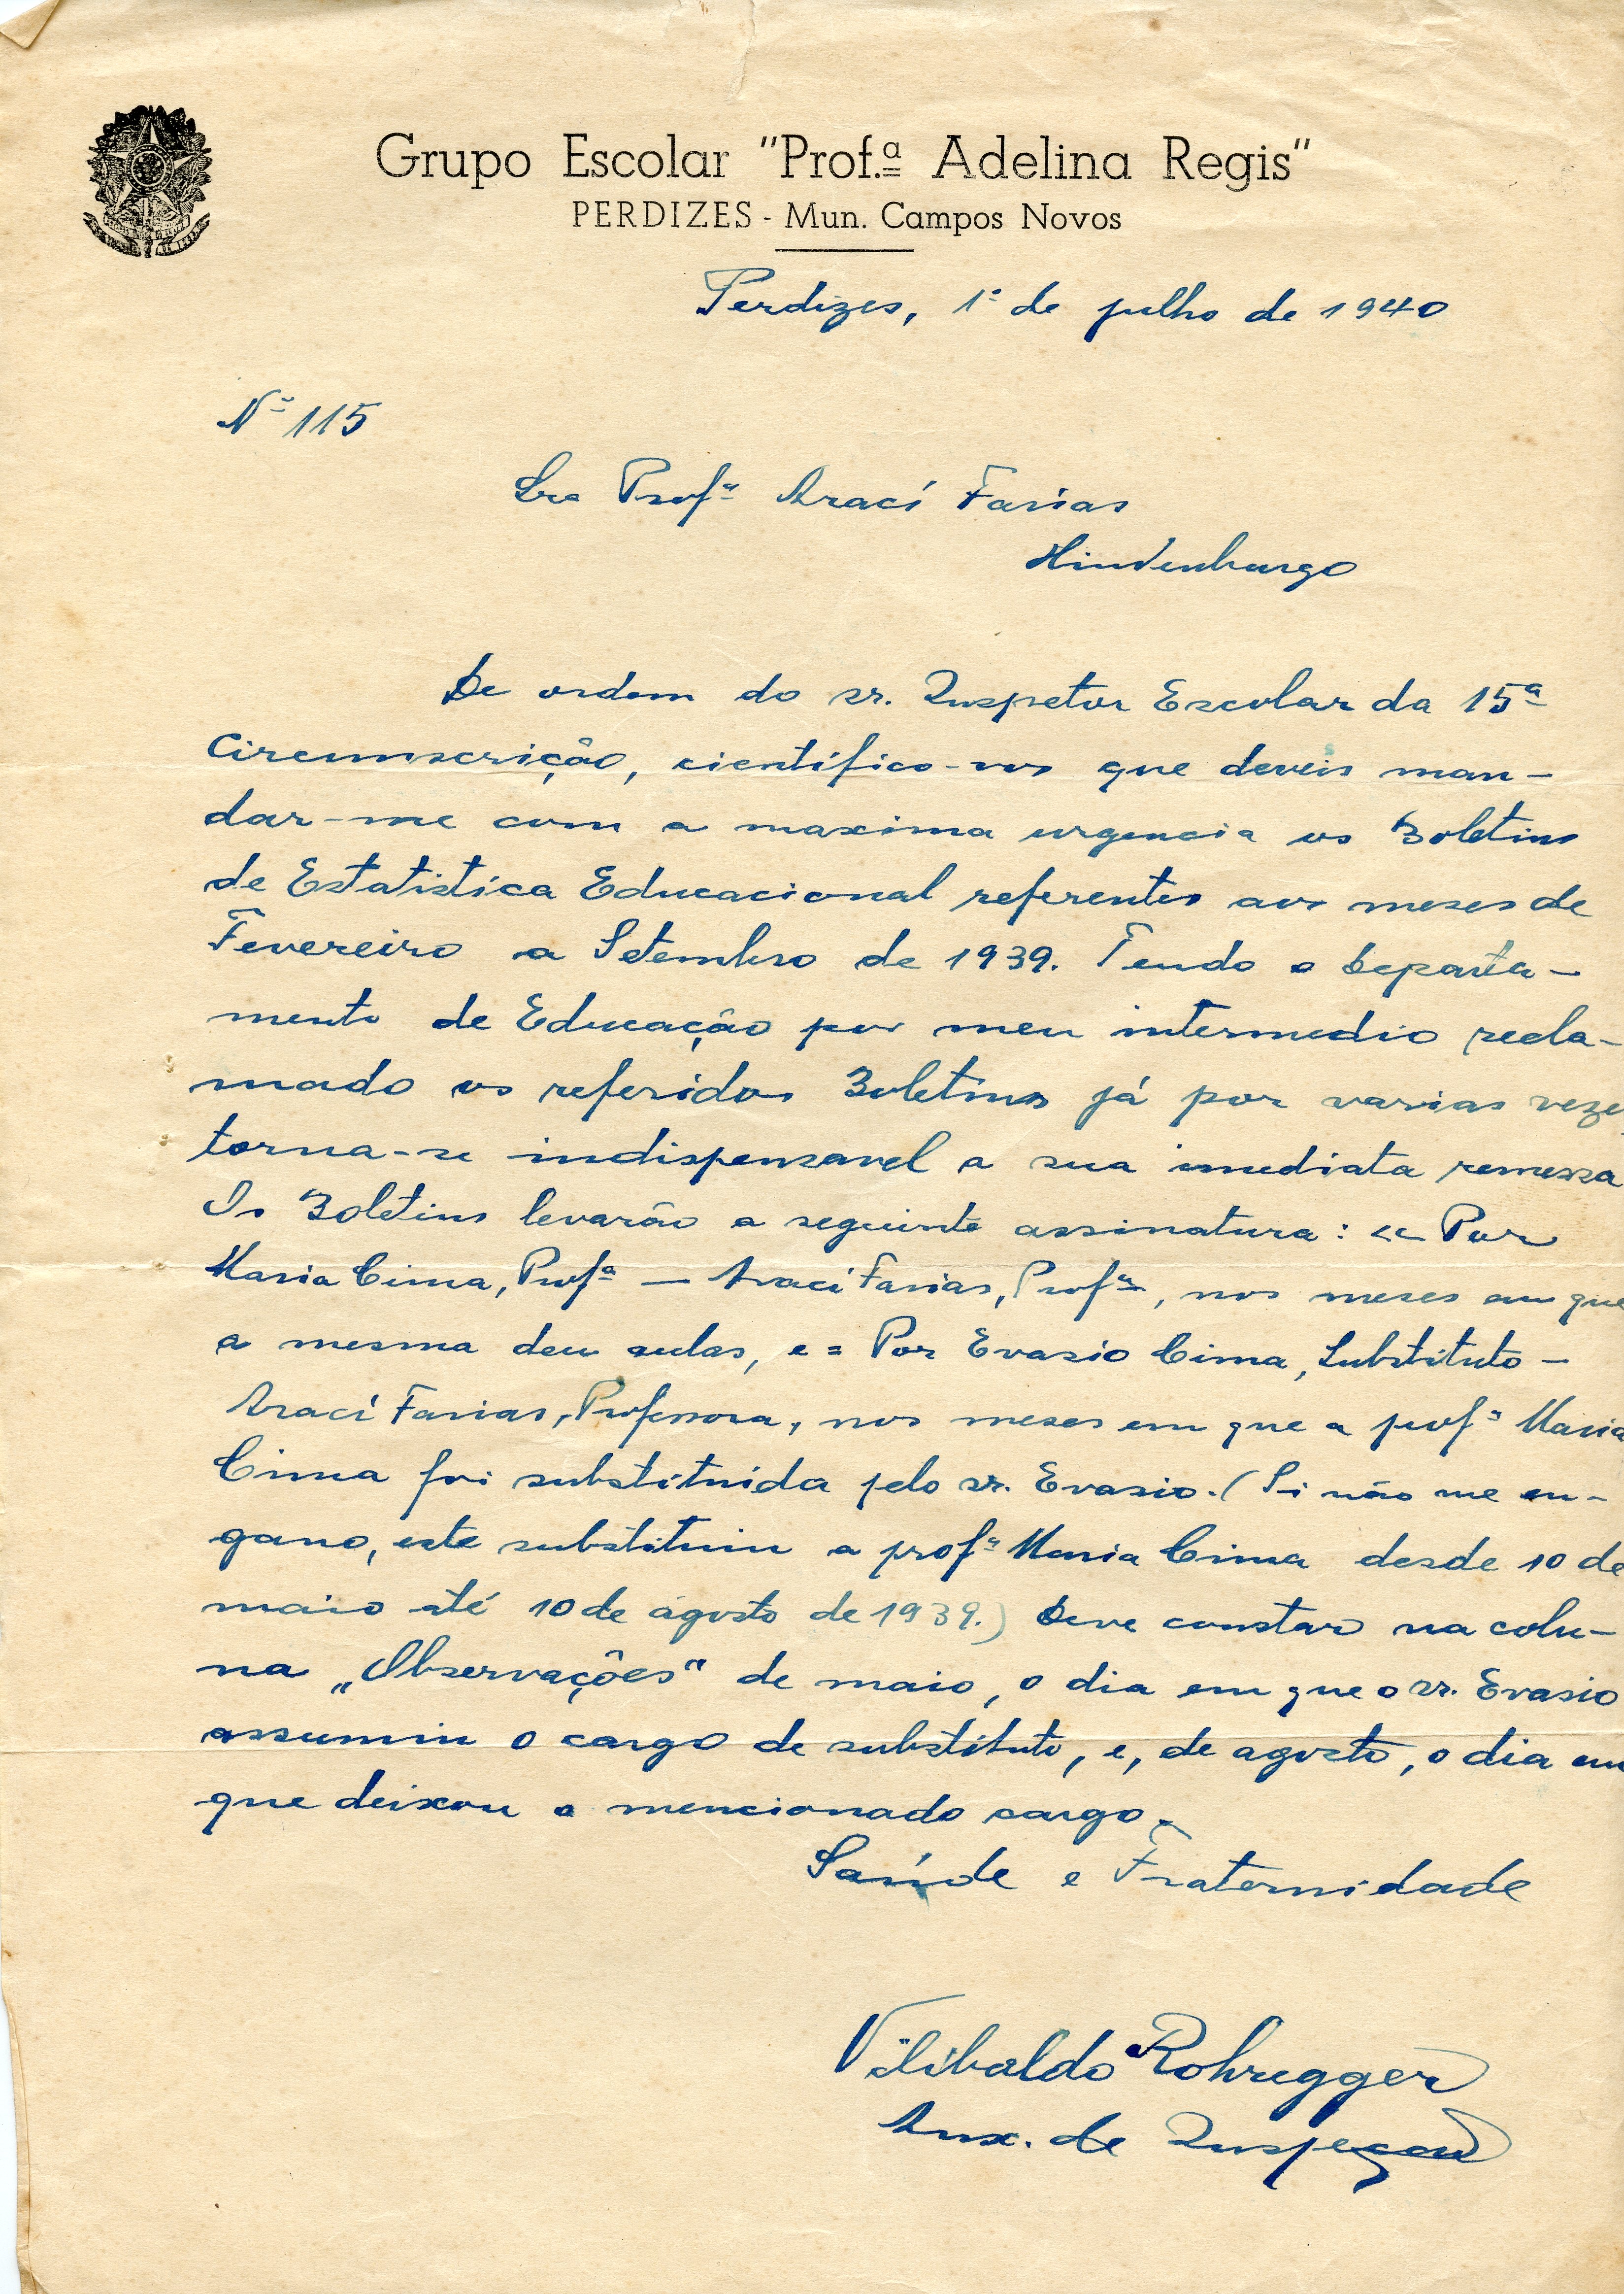 Grupo Escolar "Prof.ª Adelina Regis"
PERDIZES - Mun. Campos Novos
Perdizes, 1º de julho de 1940
Nº 115
Sra Profª Arací Farias
Hindenburgo
De ordem do sr. Inspetor Escolar da 15ª
Circunscrição, científico-vos que deveis man-
dar-me com a maxima urgencia os Boletins
de Estatistíca Educacional referentes aos meses de
Fevereiro a Setembro de 1939. Tendo o Departa-
mento de Educação por meu intermedio recla-
mado os referidos Boletins já por varias veze
torna-se indispensavel a sua imediata remessa
Os Boletins levarão a seguinte assinatura: << Por
Maria Cima, Profª — Arací Farias, Profª, nos meses em que
a mesma deu aulas, e = Por Evasio Cima, Substituto —
Arací Farias, Professora, nos meses em que a profª Maria
Cima foi substituída pelo sr. Evasio. (Si não me en-
gano, este substituiu a profª Maria Cima desde 10 de
maio até 10 de agosto de 1939.) Deve constar na colu-
na „Observações" de maio, o dia em que o sr. Evasio
assumiu o cargo de substituto, e, de agosto, o dia em
que deixou o mencionado cargo.
Saúde e Fraternidade
Vilibaldo Rohregger
Aux. de Inspeção